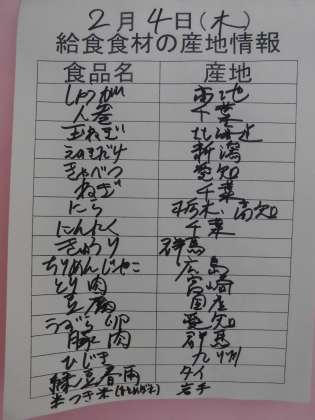 2月4日(木)
給食食材の産地情報
食品名 産地
しょうが 高知
人参 千葉
玉ねぎ 北海道
えのきだけ 新潟
きゃべつ 愛知
ねぎ 千葉
にら 栃木、高知
にんにく 千葉
きゅうり 群馬
ちりめんじゃこ 広島
とり肉 宮崎
豆腐 国産
うずら卵 愛知
豚肉 群馬
ひじき 九州
緑豆春雨 タイ
米つき米 岩手